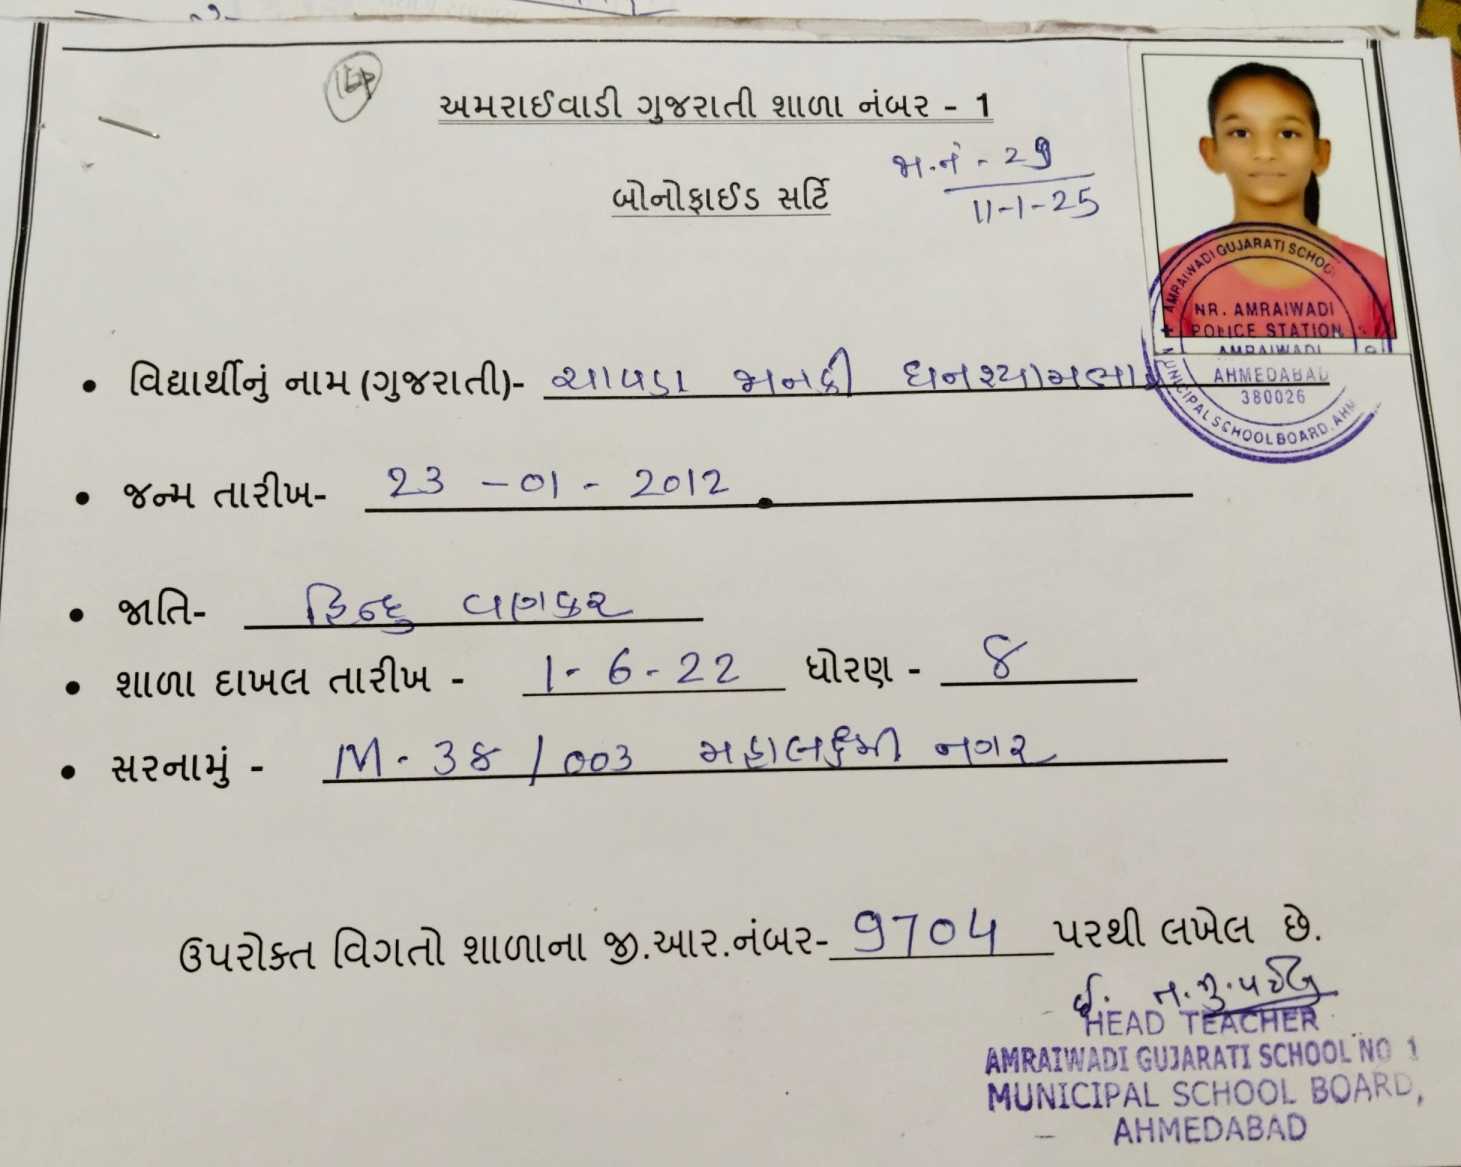 અમરાઈવાડી ગુજરાતી શાળા નંબર - 1
જા.નં - 29
11-1-25
બોનોફાઈડ સર્ટિ
AMRAIWADI GUJARATI SCHOOL
NR. AMRAIWADI
POLICE STATION
AMRAIWADI
AHMEDABAD
380026
MUNICIPAL SCHOOL BOARD. AHM
• વિદ્યાર્થીનું નામ (ગુજરાતી)- ચાવડા જાનકી ઘનશ્યામભાઈ
• જન્મ તારીખ- 23 - 01 - 2012
• જાતિ- હિન્દુ વણકર
• શાળા દાખલ તારીખ - 1-6-22 ધોરણ - ૪
• સરનામું - M-38 / 003 મહાલક્ષ્મી નગર
ઉપરોક્ત વિગતો શાળાના જી.આર.નંબર- 9704 પરથી લખેલ છે.
HEAD TEACHER
AMRAIWADI GUJARATI SCHOOL NO 1
MUNICIPAL SCHOOL BOARD,
AHMEDABAD